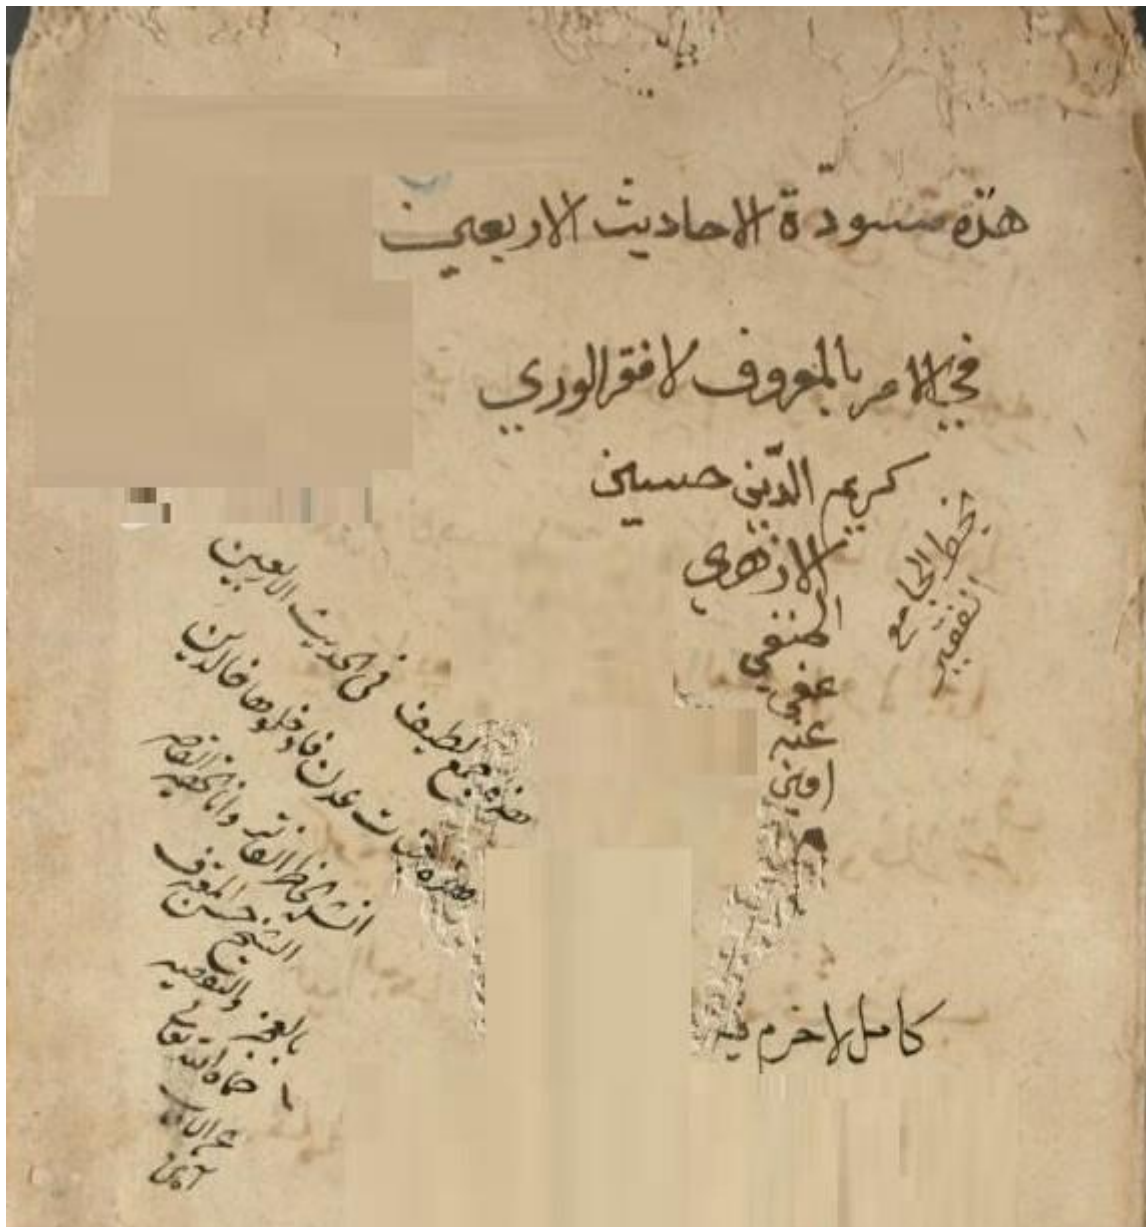 هذه مسودة الاحاديث الاربعين
في الامر بالمعروف لافقر الوري
كريم الدين حسين
الازهري
الحنفي
عفي
عنه
امين
بخط الجامع
الفقير
هذه جمع لطيف في الحديث الاربعين
هذه جنات عدن فادخلوها خالدين
الشيخ حسن المعترف
بالعجز والتوصيه
حماه الله تعالى
آمين
كامل لا خرم فيه